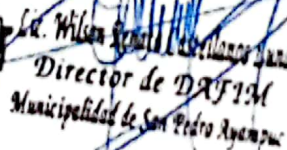 Lic. Wilson
Director de DAFIM
Municipalidad de San Pedro Ayampuc